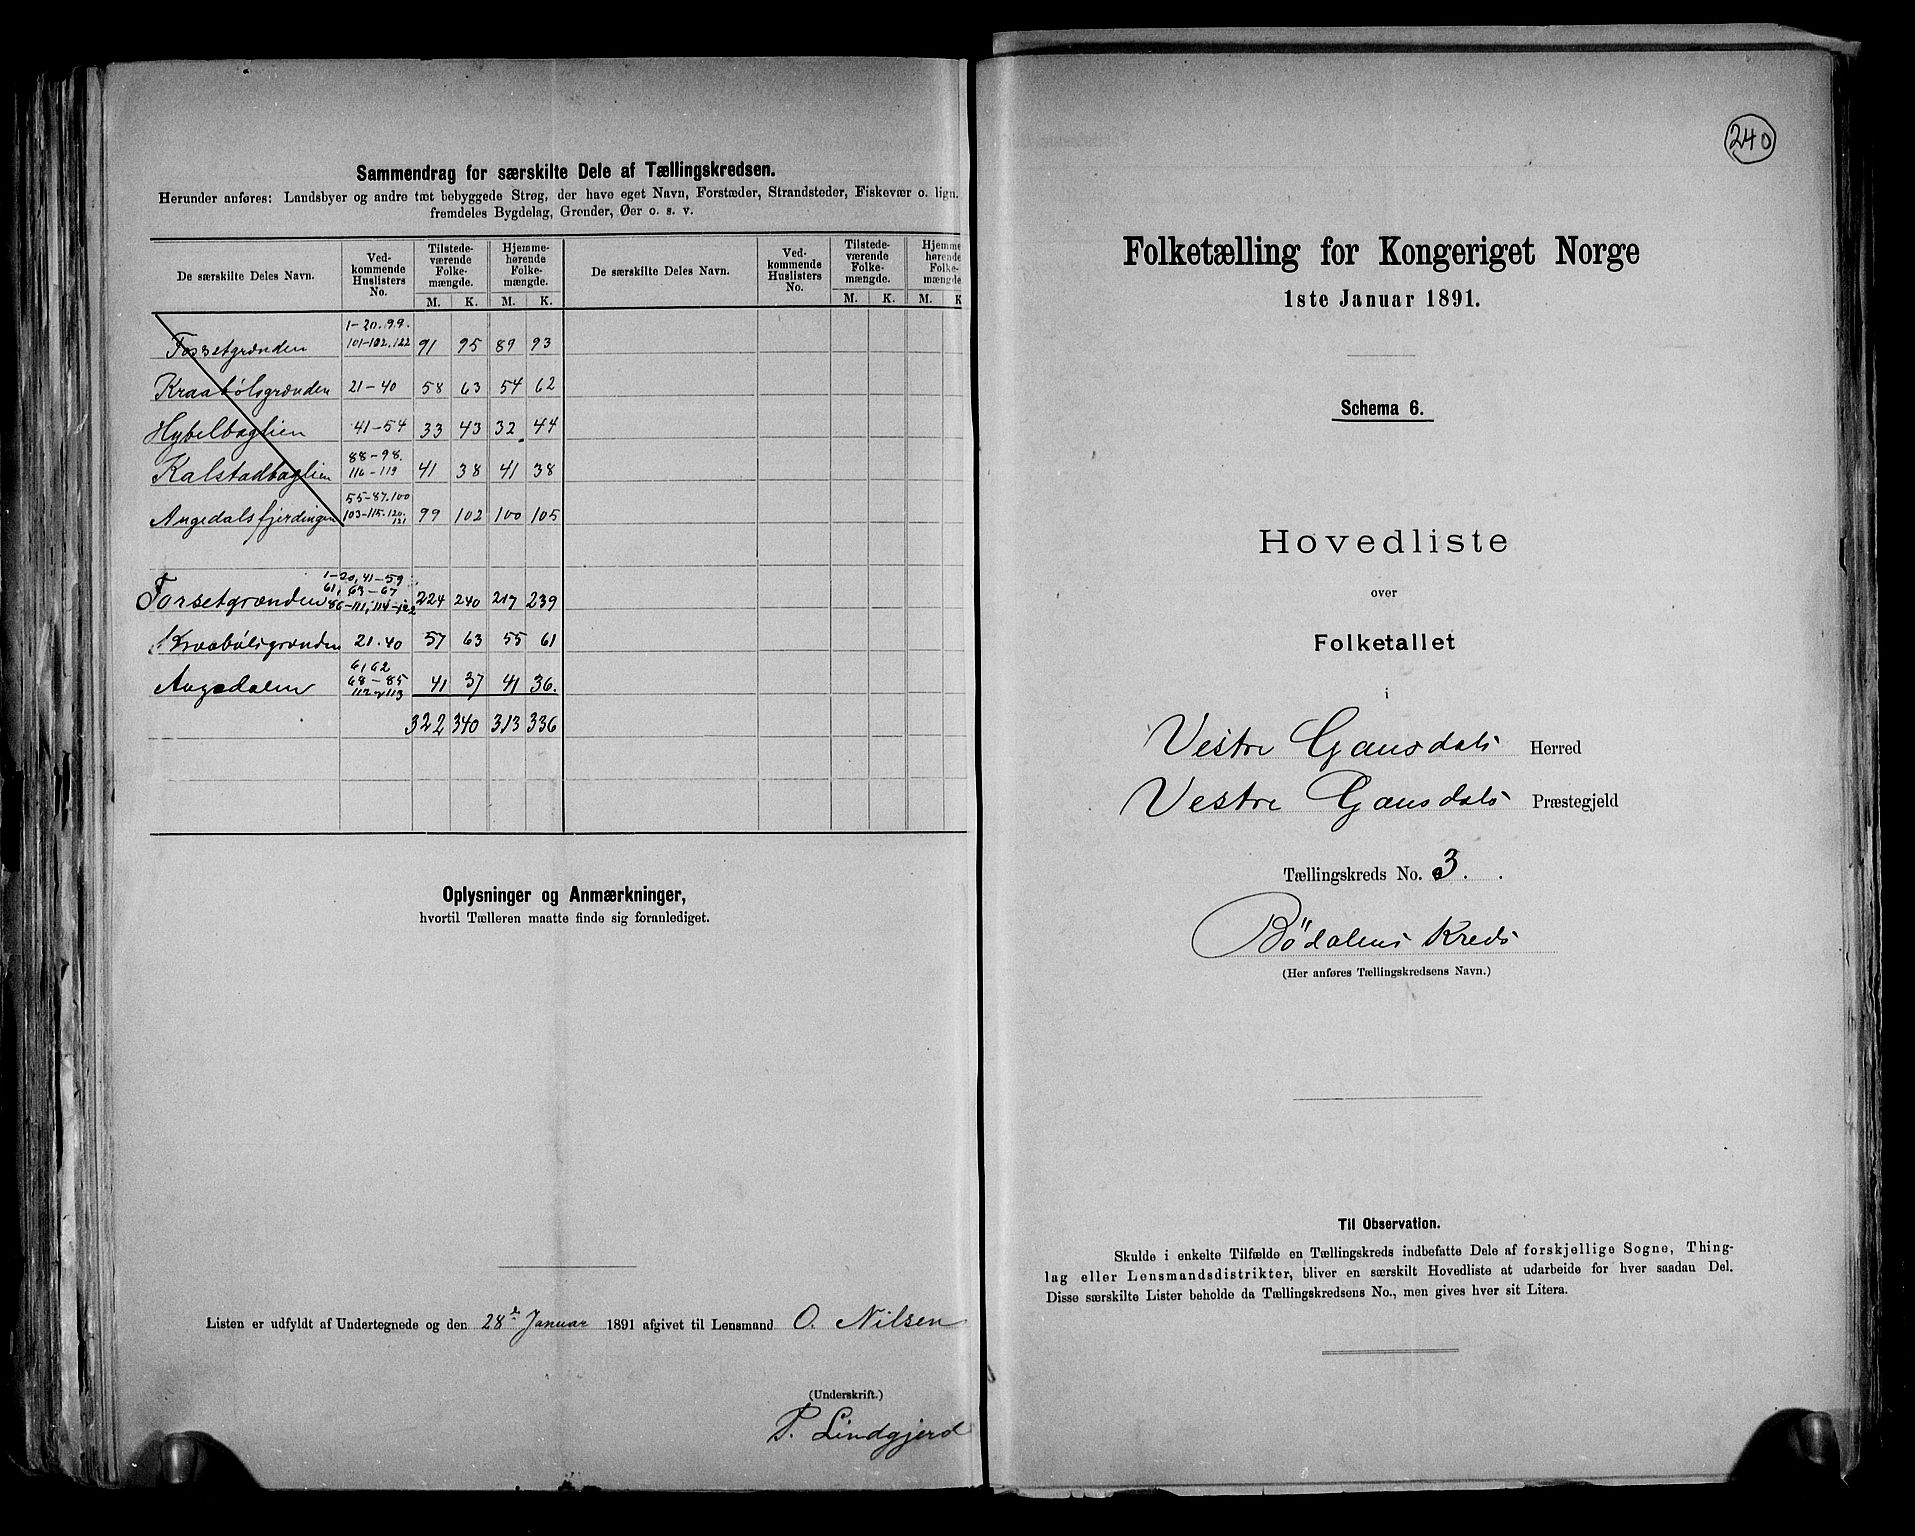 Sammendrag for særskilte Dele af Tællingskredsen.
Herunder anføres: Landsbyer og andre tæt bebyggede Strøg, der have eget Navn, Forstæder, Strandsteder, Fiskevær o. lign.
fremdeles Bygdelag, Grender, Øer o. s. v.
De særskilte Deles Navn. Vedkommende Huslisters No. Tilstedeværende Folkemængde. M. K. Hjemmehørende Folkemængde. M. K. De særskilte Deles Navn. Vedkommende Huslisters No. Tilstedeværende Folkemængde. M. K. Hjemmehørende Folkemængde. M. K.
Forsetgrænden 1-20.99. 101-102.122 91 95 89 93
Kraabølsgrænden 21-40 58 63 54 62
Hybelbaglien 41-54 33 43 32 44
Kalstadbaglien 88-98. 116-119 41 38 41 38
Augedalsfjerdingen 55-87.100 103-115.120. 121 99 102 100 105
Forsetgrænden 1-20, 41-59, 61, 63-67 86-111, 114-122 224 240 217 239
Kraabølsgrænden 21.40 57 63 55 61
Augedalen 61 62 68-85 112 113 41 37 41 36.
322 340 313 336
Oplysninger og Anmærkninger,
hvortil Tælleren maatte finde sig foranlediget.
Listen er udfyldt af Undertegnede og den 28de Januar 1891 afgivet til Lensmand O. Nilsen
(Underskrift.)
P. Lindgjerd
240
Folketælling for Kongeriget Norge
1ste Januar 1891.
Schema 6.
Hovedliste
over
Folketallet
i
Vestre Gausdals Herred
Vestre Gausdals Præstegjeld
Tællingskreds No. 3.
Bödalens Kreds
(Her anføres Tællingskredsens Navn.)
Til Observation.
Skulde i enkelte Tilfælde en Tællingskreds indbefatte Dele af forskjellige Sogne, Thing-
lag eller Lensmandsdistrikter, bliver en særskilt Hovedliste at udarbeide for hver saadan Del.
Disse særskilte Lister beholde da Tællingskredsens No., men gives hver sit Litera.